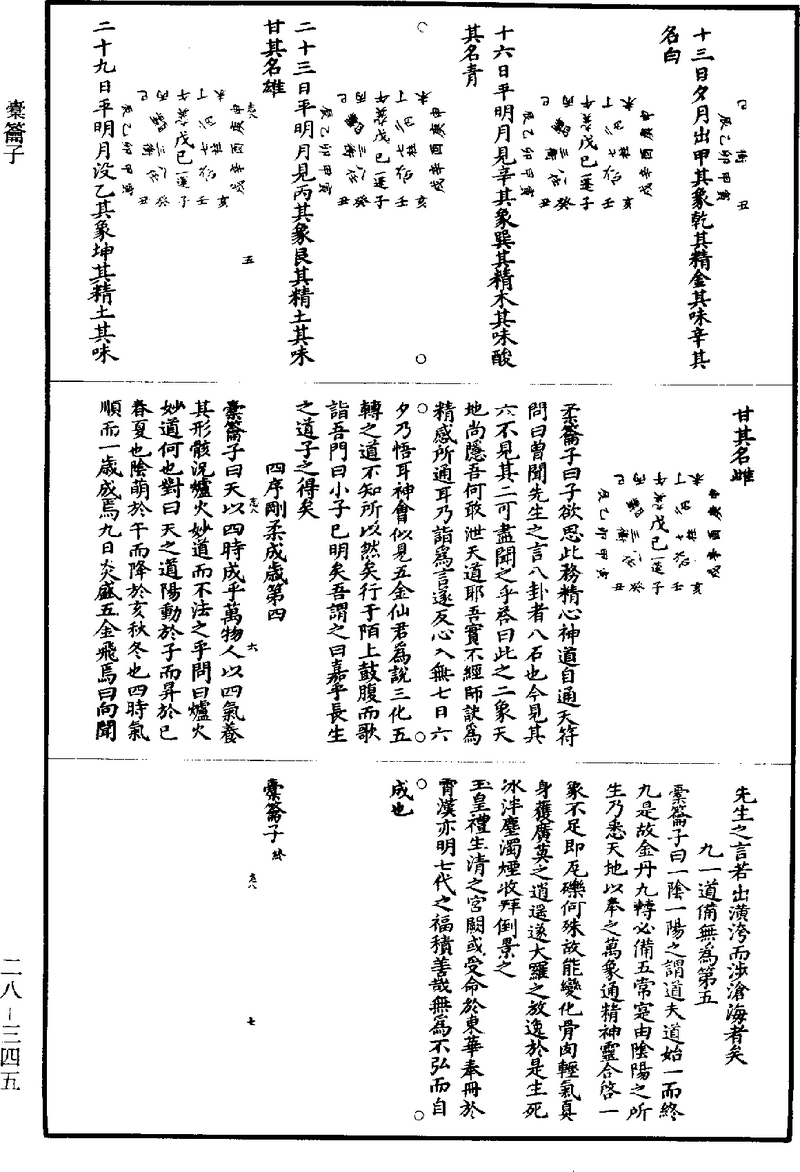 十三日夕月出甲其象乾其精金其味辛其
名白
十六日平明月見辛其象巽其精木其味酸
其名青
二十三日平明月見丙其象艮其精土其味
甘其名雄
二十九日平明月没乙其象坤其精土其味
五
甘其名雌
橐籥子曰子欲思此務精心神道自通天符
問曰曾聞先生之言八卦者八石也今見其
六不見其二可盡聞之乎答曰此之二象天
地尚隱吾何敢泄天道耶吾實不經師訣爲
精感所通耳乃詣爲言遂反心入無七日六
夕乃悟耳神會似見五金仙君爲說三化五
轉之道不知所以然矣行于陌上鼓腹而歌
詣吾門曰小子已明矣吾謂之曰嘉乎長生
之道子之得矣
四序剛柔成歲第四
橐籥子曰天以四時成乎萬物人以四氣養
其形骸況爐火妙道而不法之乎問曰爐火
妙道何也對曰天之道陽動於子而昇於巳
春夏也陰萌於午而降於亥秋冬也四時氣
順而一歲成焉九日炎盛五金飛焉曰向聞
六
先生之言若出潢洿而涉滄海者矣
九一道備無爲第五
橐籥子曰一陰一陽之謂道夫道始一而終
九是故金丹九轉必備五常寔由陰陽之所
生乃悉天地以奉之萬象通精神靈合啓一
象不足即瓦礫何殊故能變化骨肉輕氣真
身獲廣莫之逍遥遂大羅之放逸於是生死
冰泮塵濁煙收拜倒景之
玉皇禮生清之宮闕或受命於東華奉冊於
霄漢亦明七代之福積善哉無爲不弘而自
成也
橐籥子終
七
橐籥子
二八-三四五